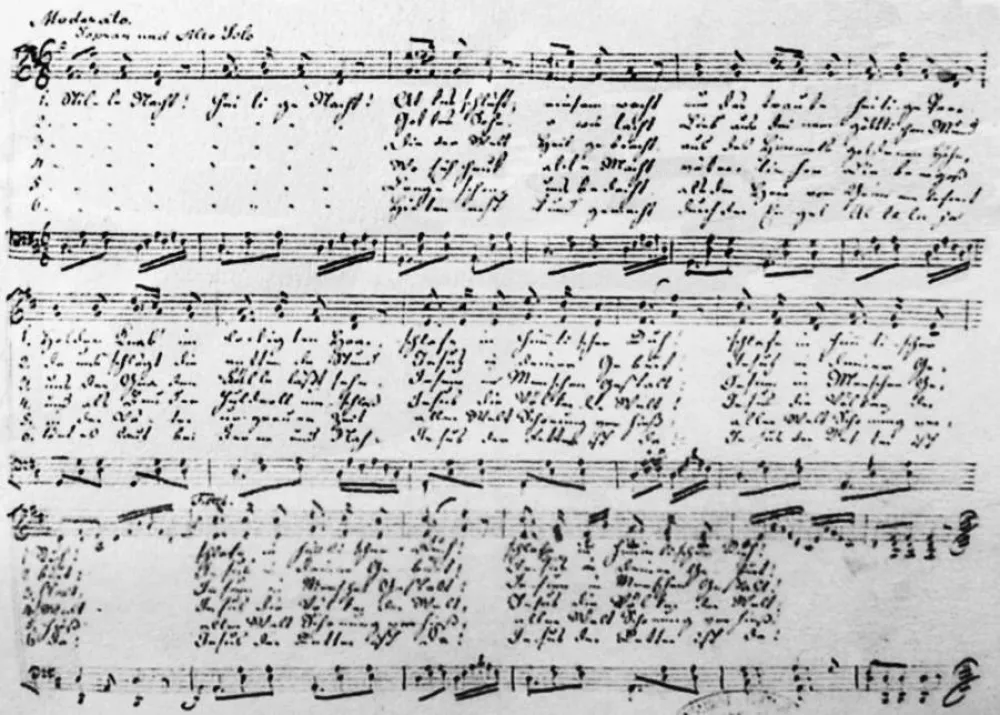 Moderato.
Sopran und Alto Solo
1. Stille Nacht! Heilige Nacht! Alles schläft; einsam wacht nur das traute heilige Paar.
2. " " " " " " Gottes Sohn, o wie lacht Lieb' aus deinem göttlichen Mund
3. " " " " " " Die der Welt Heil gebracht, aus des Himmels goldenen Höhn,
4. " " " " " " Wo sich heut alle Macht
5. " " " " " " Lange schon uns bedacht, als der Herr vom Grimme befreit
6. " " " " " " Hirten erst kund gemacht durch der Engel Alleluja
1. Holder Knab' im lockigten Haar, schlafe in himmlischer Ruh! schlafe in himmlischer
2. Da uns schlägt die rettende Stund. Jesus in deiner Geburt! Jesus in deiner Ge-
3. uns der Gnaden Fülle läßt sehn, Jesum in Menschengestalt! Jesum in Menschenge-
4. und als Bruder huldvoll umschloß Jesus die Völker der Welt! Jesus die Völker der
5. aller Welt Schonung verhieß! aller Welt Schonung ver-
6. Tönt es laut bei Ferne und Nah: Jesus der Retter ist da! Jesus der Retter ist
Ruh! schlafe in himmlischer Ruh! schlafe in himmlischer Ruh!
burt! Jesus in deiner Geburt! Jesus in deiner Geburt!
stalt. Jesum in Menschengestalt! Jesum in Menschengestalt!
Welt Jesus die Völker der Welt! Jesus die Völker der Welt!
hieß! aller Welt Schonung verhieß! aller Welt Schonung verhieß!
da! Jesus der Retter ist da! Jesus der Retter ist da!